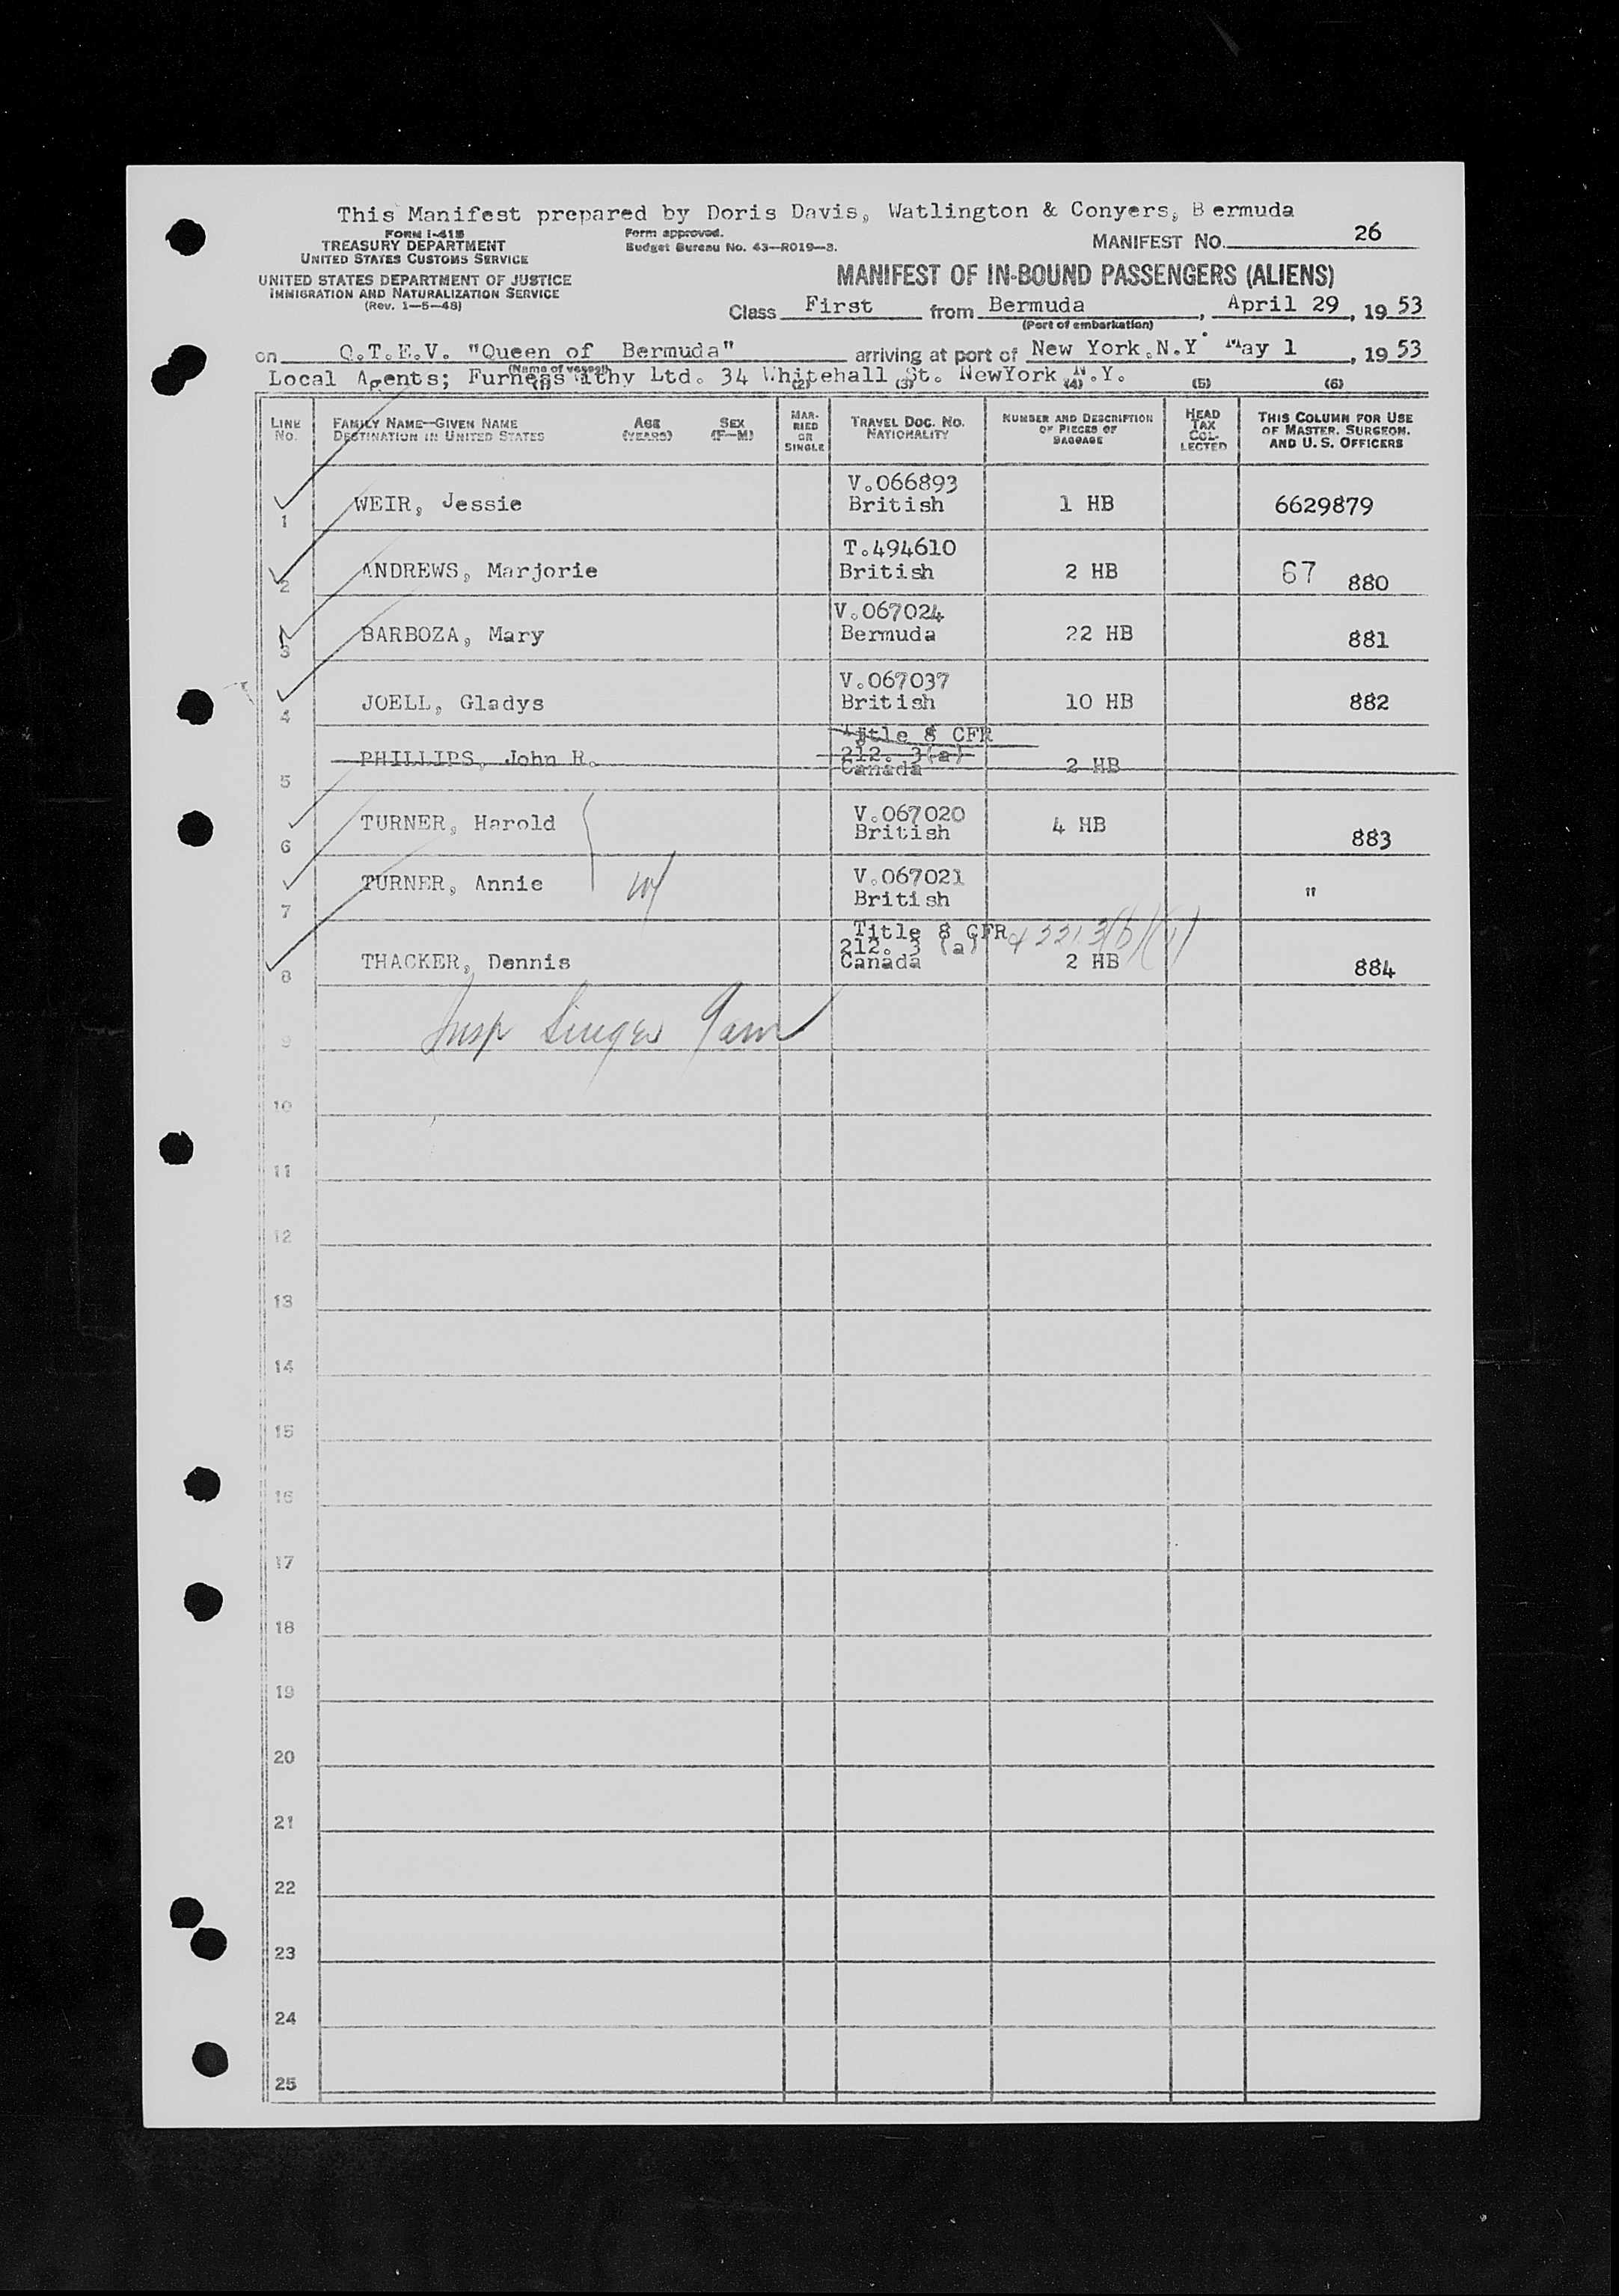 This Manifest prepared by Doris Davis, Watlington & Conyers, Bermuda
FORM I-418
TREASURY DEPARTMENT
UNITED STATES CUSTOMS SERVICE
UNITED STATES DEPARTMENT OF JUSTICE
IMMIGRATION AND NATURALIZATION SERVICE
(Rev. 1-5-48)
Form approved.
Budget Bureau No. 43-R019-3.
MANIFEST NO. 26
MANIFEST OF IN-BOUND PASSENGERS (ALIENS)
Class First from Bermuda, April 29, 1953
(Port of embarkation)
on Q.T.E.V. "Queen of Bermuda" arriving at port of New York.N.Y. May 1, 1953
(Name of vessel)
Local Agents; Furness Withy Ltd. 34 Whitehall St. NewYork N.Y.
(1) (2) (3) (4) (5) (6)
LINE No. FAMILY NAME—GIVEN NAME DESTINATION IN UNITED STATES AGE (YEARS) SEX (F-M) MARRIED OR SINGLE TRAVEL DOC. NO. NATIONALITY NUMBER AND DESCRIPTION OF PIECES OF BAGGAGE HEAD TAX COLLECTED THIS COLUMN FOR USE OF MASTER, SURGEON, AND U. S. OFFICERS
1 WEIR, Jessie V.066893 British 1 HB 6629879
2 ANDREWS, Marjorie T.494610 British 2 HB 67 880
3 BARBOZA, Mary V.067024 Bermuda 22 HB 881
4 JOELL, Gladys V.067037 British 10 HB 882
5 PHILLIPS, John R. Title 8 CFR 212. 3(a) Canada 2 HB
6 TURNER, Harold V.067020 British 4 HB 883
7 TURNER, Annie V.067021 British "
8 THACKER, Dennis Title 8 CFR 212. 3 (a) Canada 2 HB 884
Insp Singer 9am
9
10
11
12
13
14
15
16
17
18
19
20
21
22
23
24
25